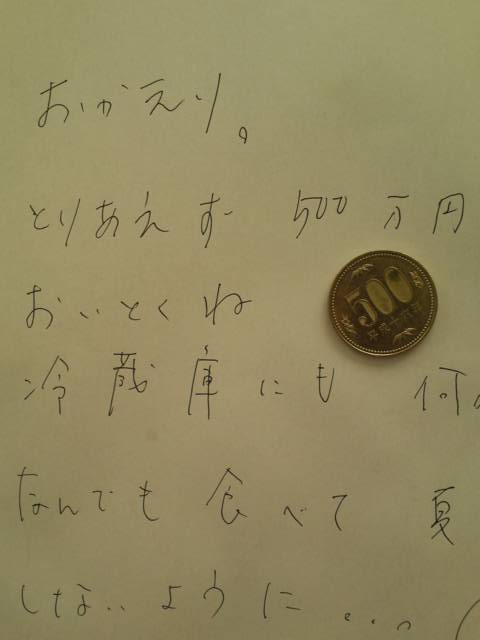 おかえり。
とりあえず 500万円
おいとくね
500
冷蔵庫にも 何
なんでも 食べて 夏
しないように...。(